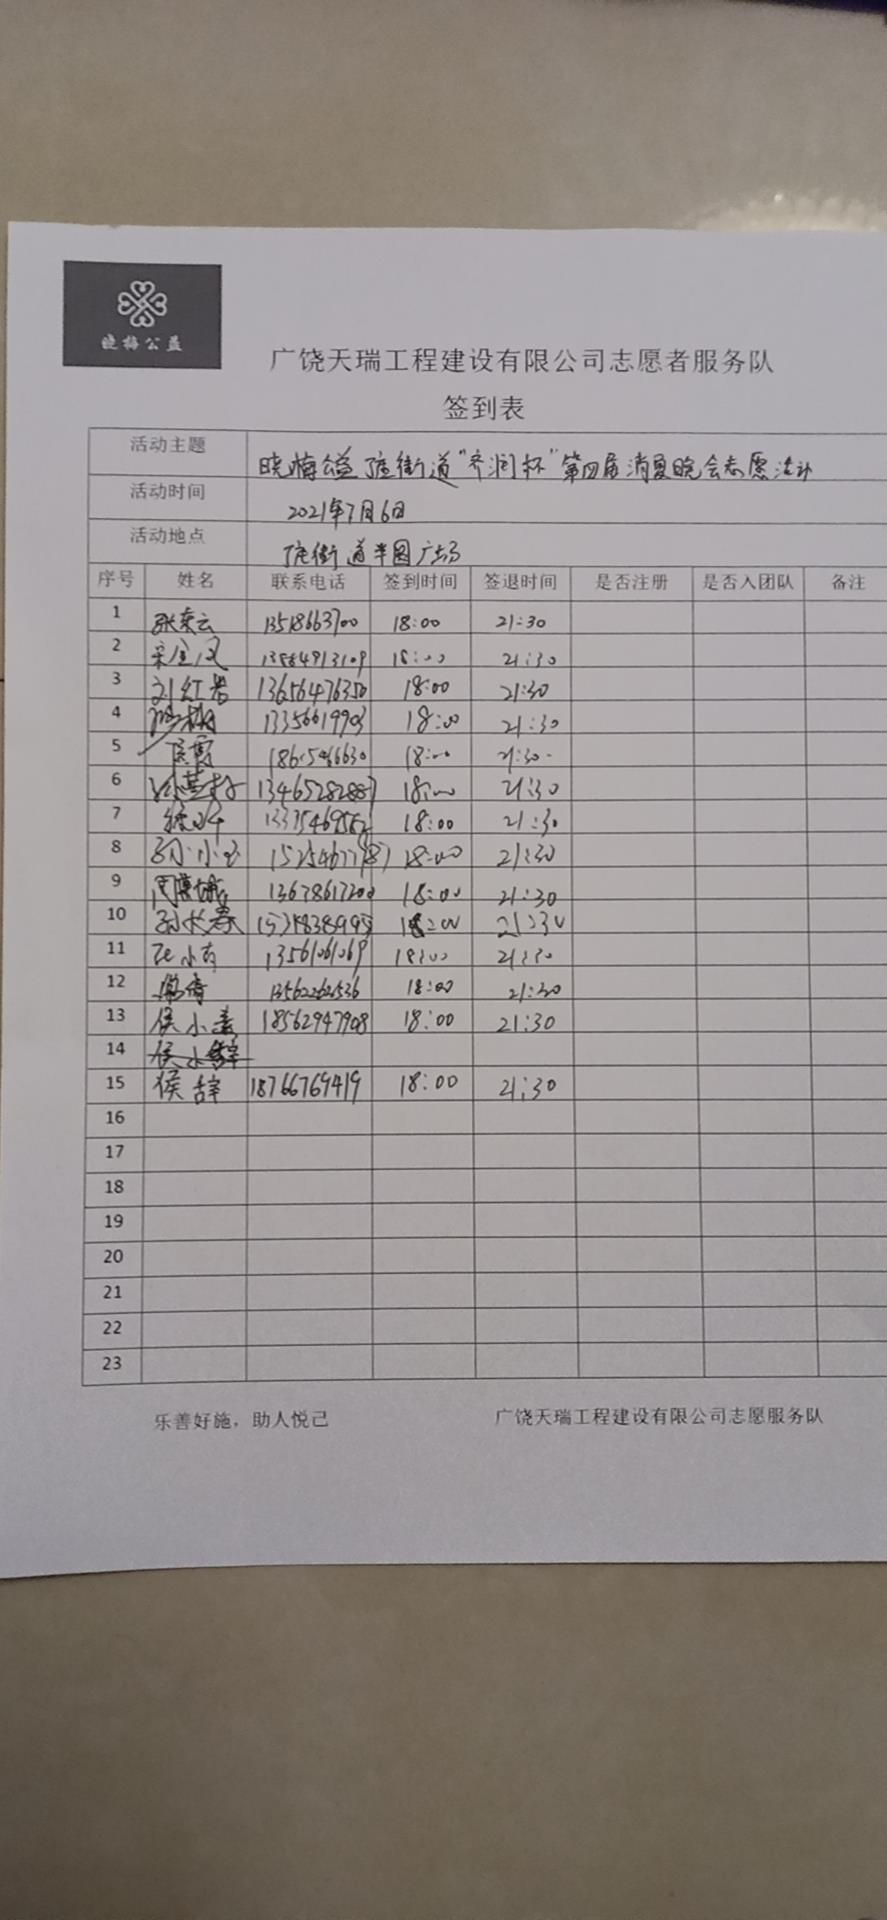 晓梅公益
广饶天瑞工程建设有限公司志愿者服务队
签到表
活动主题 晓梅公益 街道"齐润杯"第四届消夏晚会志愿活动
活动时间 2021年7月6日
活动地点 街道半圆广场
序号 姓名 联系电话 签到时间 签退时间 是否注册 是否入团队 备注
1 张荣云 13518663700 18:00 21:30
2 宋金凤 13864913109 18:00 21:30
3 刘红岩 13656476350 18:00 21:30
4 13356619903 18:00 21:30
5 18615466630 18:00 21:30
6 13465282887 18:00 21:30
7 13375469562 18:00 21:30
8 孙小玉 18:00 21:30
9 13678617200 18:00 21:30
10 孙长春 18:00 21:30
11 13561061069 18:00 21:30
12 13562262536 18:00 21:30
13 侯小孟 18562947908 18:00 21:30
14 侯小
15 侯辞 18766769419 18:00 21:30
16
17
18
19
20
21
22
23
乐善好施，助人悦己 广饶天瑞工程建设有限公司志愿服务队